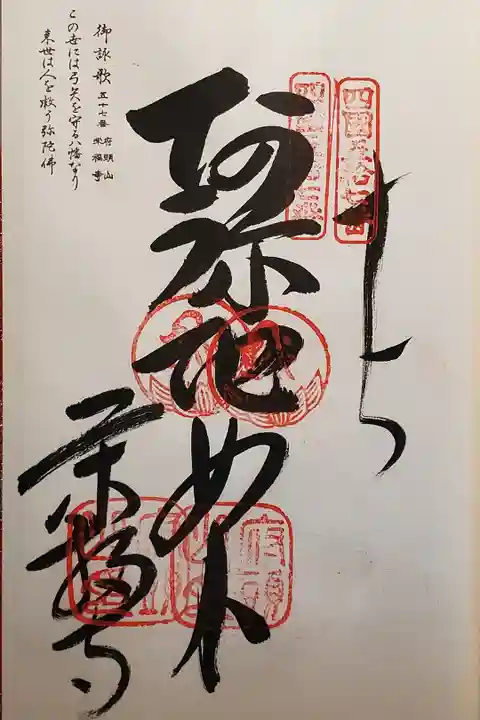 四國五拾七番
阿弥陀如来
栄福寺
御詠歌 五十七番 府頭山 栄福寺
この世には弓矢を守る八幡なり
来世は人を救う弥陀佛
府頭